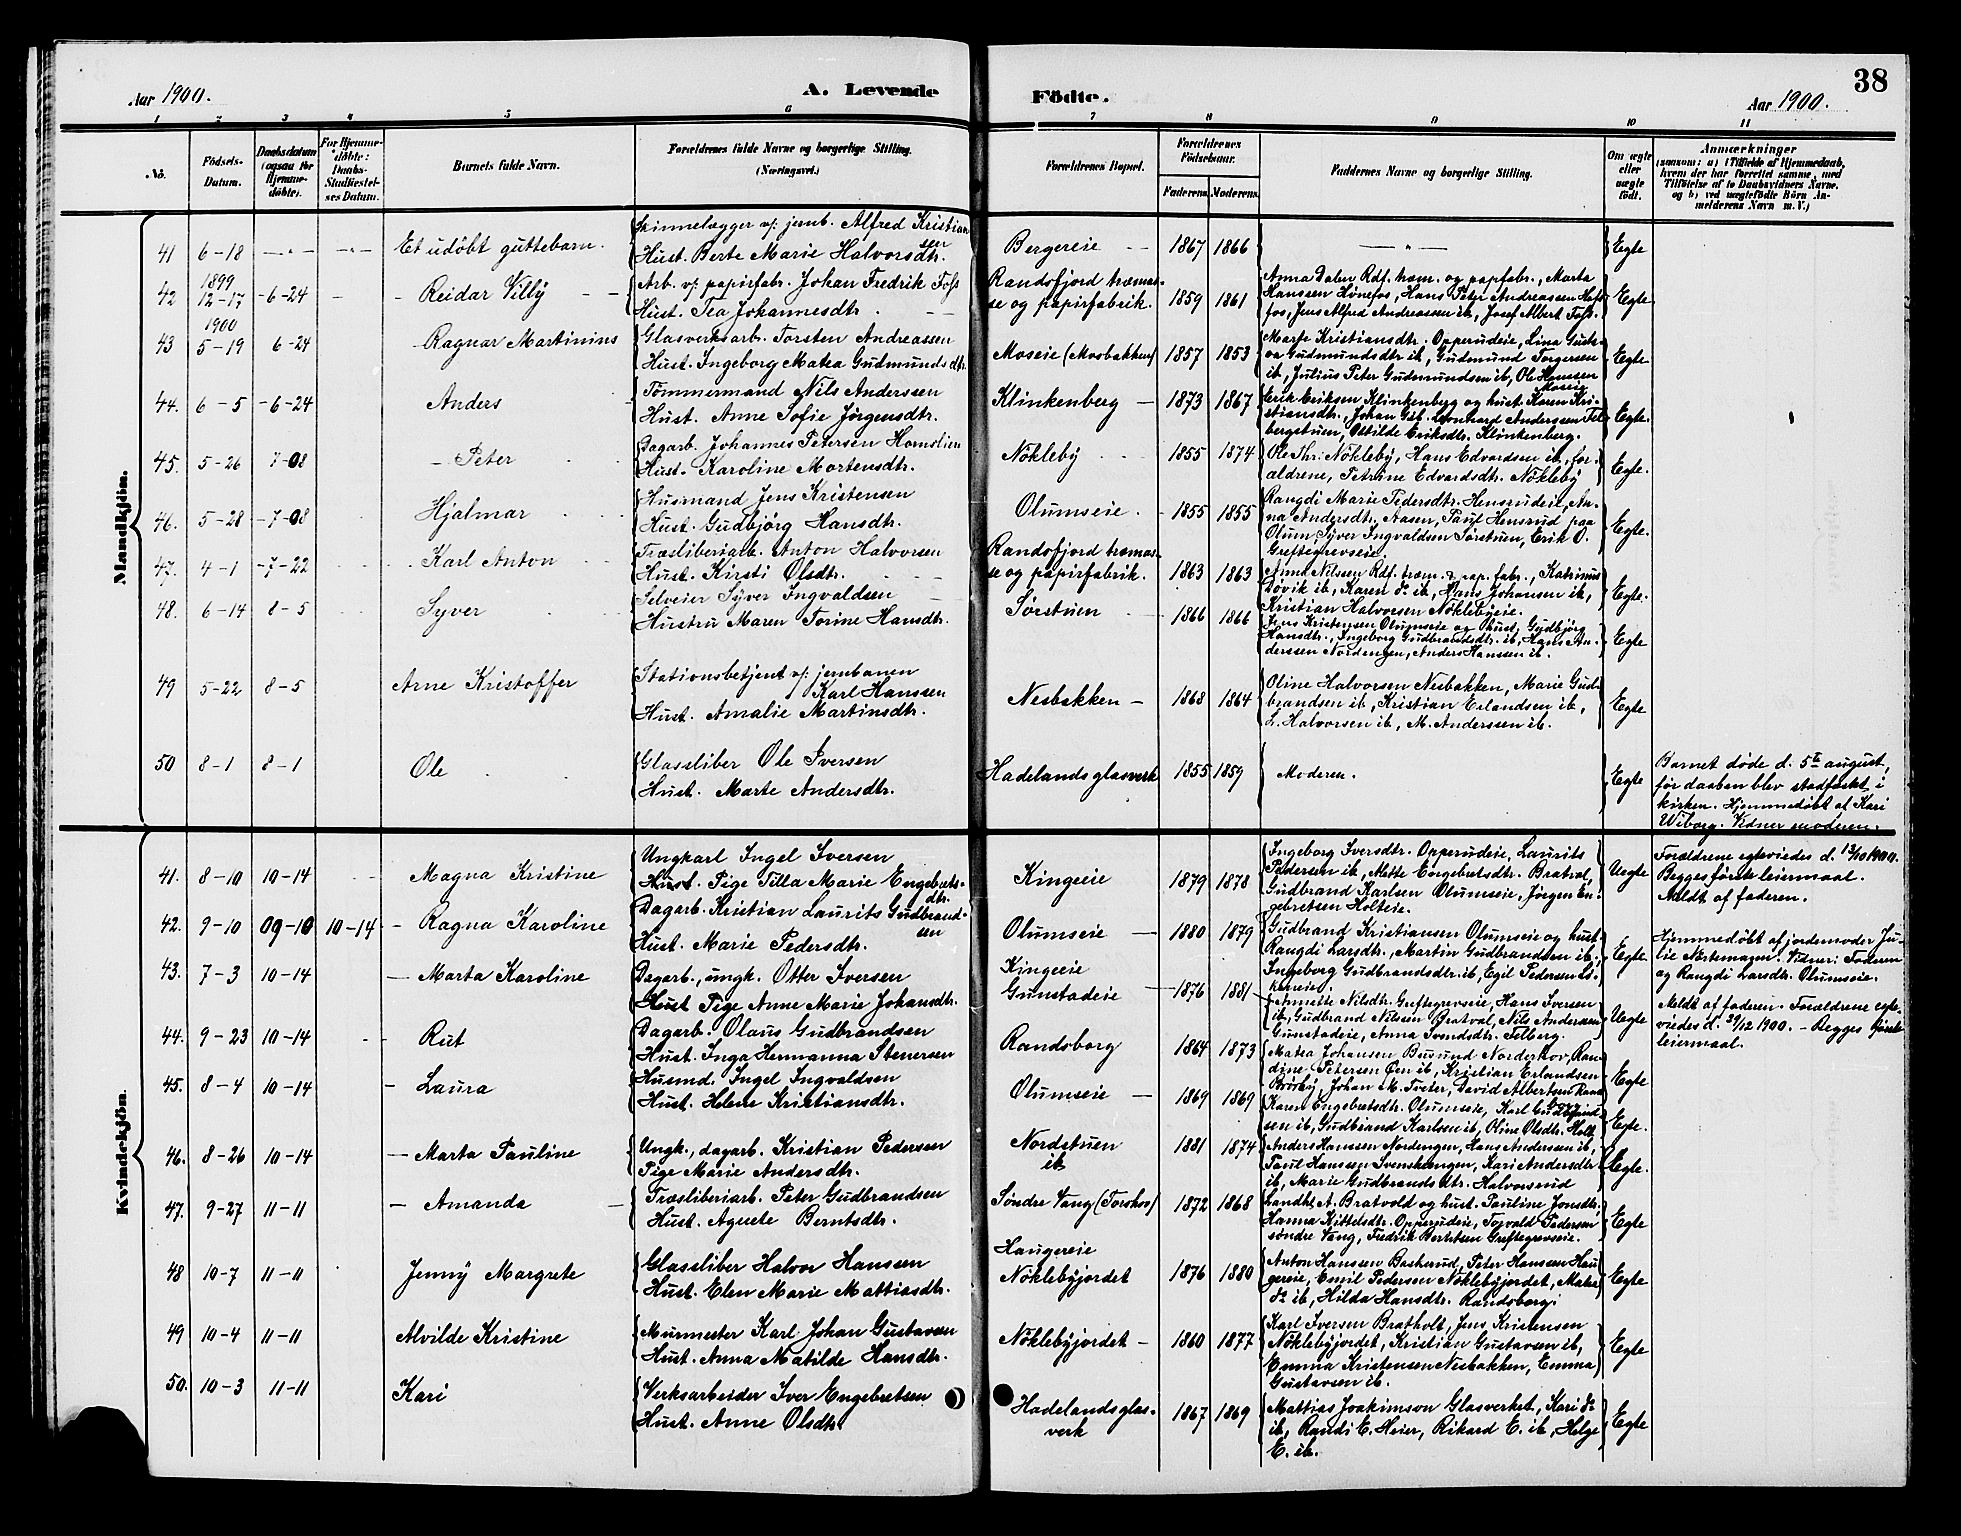 38
Aar 1900. A. Levende Födte. Aar 1900.
1 2 3 4 5 6 7 8 9 10 11
No. Födsels-Datum. Daabsdatum (ogsaa for Hjemme-döbte). For Hjemme-döbte: Daabs-Stadfæstel-ses Datum. Barnets fulde Navn. Forældrenes fulde Navne og borgerlige Stilling. (Næringsvei.) Forældrenes Bopæl. Forældrenes Födselsaar. Faderens. Moderens. Faddernes Navne og borgerlige Stilling. Om ægte eller uægte födt. Anmærkninger
(saasom: a) i Tilfælde af Hjemmedaab, hvem der har forrettet samme, med Tilföielse af to Daabsvidners Navne, og b) ved uægtefödte Börn Anmelderens Navn m. V.)
Mandkjön.
41 6-18 -"- -"- Et udöbt guttebarn. Skinnelægger v/ jernb. Alfred Kristiansen
Hust. Berte Marie Halvorsdtr. Bergereie 1867 1866 -"- Egte
42 1899 12-17 6-24 Reidar Villy Arb. v/ papirfabr. Johan Fredrik Foss
Hust. Tea Johannesdtr. Randsfjord træmasse og papirfabrik. 1859 1861 Anna Dalen Rdf. træm. og papfabr., Marta
Hanssen Hönefos, Hans Petr Andreassen
fos, Jens Alfred Andreassen ib, Josef Albert Foss. Egte
43 1900 5-19 6-24 Ragnar Martinius Glasverksarb. Torsten Andreassen
Hust. Ingeborg Matea Gudmundsdtr. Moseie (Mosbakken) 1857 1853 Marte Kristiansdtr. Opperudeie, Lina
Gudmundsdtr ib, Gudmund Torgersen
ib, Julius Peter Gudmundsen ib, Ole Hanssen
Moseie Egte
44. 6-5 6-24 Anders Tömmermand Nils Anderssen
Hust. Anne Sofie Jörgensdtr. Klinkenberg 1873 1867 Erik Eriksen Klinkenberg og hust. Karen Kri-
stiansdtr., Johan Gbl. Leonhard Anderssen Fel-
bergstuen, Oltilde Eriksdtr. Klinkenberg. Egte.
45. 5-26 7-08 Peter Dagarb. Johannes Petersen Homslien
Hust. Karoline Mortensdtr. Nökleby 1855 1874 Ole Thr. Nökleby, Hans Edvardsen ib, for-
ældrene, Petrine Edvardsdtr. Nökleby Egte.
46. 5-28 7-08 Hjalmar Husmand Jens Kristensen
Hust. Gudbjörg Hansdtr. Olumseie. 1855 1855 Rangdi Marie Pedersdtr. Hensrudeie, An-
na Andersdtr. Aasen, Paul Hensrud paa
Olum, Syver Ingvaldsen Sørstuen, Erik O.
Greftegrevseie. Egte.
47. 4-1 7-22 Karl Anton Træsliberiarb. Anton Halvorsen
Hust. Kirsti Olsdtr. Randsfjord træmasse og papirfabrik. 1863 1863 Anna Nilsen Rdf. træm. & pap. fabr., Katrinus
Dövik ib, Karen do ib, Hans Johansen ib,
Kristian Halvorsen Nöklebyeie. Egte.
48. 6-14 8-5 Syver Selveier Syver Ingvaldsen
Hustru Maren Torine Hansdtr. Sørstuen 1866 1866 Jens Kristensen Olumseie og hust. Gudbjörg
Hansdtr., Ingeborg Gudbrandsdtr. ib, Hans An-
derssen Nordengen, Anders Hanssen ib. Egte
49 5-22 8-5 Arne Kristoffer Stationsbetjent v/ jernbanen
Karl Hanssen
Hust. Amalie Martinsdtr. Nesbakken 1868 1864 Oline Halvorsen Nesbakken, Marie Gud-
brandsen ib, Kristian Erlandsen ib,
L. Halvorsen ib, M. Anderssen ib. Egte
50 8-1 8-1 Ole Glassliber Ole Iversen
Hust. Marte Andersdtr. Hadelands glasverk 1855 1859 Moderen. Egte Barnet døde d. 5te august,
før daaben blev stadfæstet i
kirken. Hjemmedöbt af Kari
Wiborg. Vidner moderen.
Kvindekjön.
41. 8-10 10-14 Magna Kristine Ungkarl Ingel Iversen
Hust. Pige Tilla Marie Engebretsdtr. Kingeeie 1879 1878 Ingeborg Iversdtr. Opperudeie, Laurits
Pedersen ib, Mette Engebretsdtr. Bratval,
Gudbrand Karlsen Olumseie, Jörgen En-
gebretsen Holteie. Uegte Forældrene egteviedes d. 13/10 1900.
Begges første leiermaal.
Meldt af faderen.
42. 9-10 09-10 10-14 Ragna Karoline Dagarb. Kristian Laurits Gudbrandsen
Hust. Marie Pedersdtr. Olumseie 1880 1879 Gudbrand Kristiansen Olumseie og hust.
Rangdi Larsdtr., Martin Gudbrandsen ib.
Ingeborg Gudbrandsdtr. ib, Egil Pedersen Li-
kereie. Egte. Hjemmedöbt af jordemoder Ju-
lie Næstemagn. Vidner: Faderen
og Rangdi Larsdtr. Olumseie.
43. 7-3 10-14 Marta Karoline Dagarb., ungk. Otter Iversen
Hust Pige Anne Marie Johansdtr. Kingeeie
Gunstadeie 1876 1881 Annette Nilsdtr. Greftegrevseie, Hans Iversen
ib, Gudbrand Nilsen Bratval, Nils Andersen
Gunstadeie, Anna Svendsdtr. Felberg. Uegte Meldt af faderen. Forældrene egte-
viedes d. 29/12 1900. - Begges første
leiermaal.
44. 9-23 10-14 Rut Dagarb. Olaus Gudbrandsen
Hust. Inga Hermanna Stenersen Randsborg 1864 1873 Matea Johansen Busund Norderhov, Ran-
dine Petersen Öen ib, Kristian Erlandsen
Brörby, Johan M. Tveter, David Albertsen Rands-
borg Egte
45. 8-4 10-14 Laura Husmd. Ingel Ingvaldsen
Hust. Helene Kristiansdtr. Olumseie 1869 1869 Karen Engebretsdtr. Olumseie, Karl Gudbrand-
sen ib, Gudbrand Karlsen ib, Oline Olsdtr. Holt. Egte.
46. 8-26 10-14 Marta Pauline Ungk., dagarb. Kristian Pedersen
Pige Marie Andersdtr. Nordstuen
ib 1881 1874 Anders Hanssen Nordengen, Hans Anderssen ib,
Paul Hanssen Svenskengen, Kari Andersdtr
ib, Marie Gudbrandsdtr. Halvorsrud Egte.
47. 9-27 11-11 Amanda Træsliberiarb. Peter Gudbrandsen
Hust. Agnete Berntsdtr. Søndre Vang (Torshov) 1872 1868 Landh. A. Bratvold og hust. Pauline Jonsdtr.
Hanna Kittelsdtr. Opperudeie, Torvald Pedersen
søndre Vang, Fredrik Berntsen Greftegrevseie. Egte
48 10-7 11-11 Jenny Margrete Glassliber Halvor Hanssen
Hust. Elen Marie Mattiasdtr. Haugereie
Nöklebyjordet 1876 1880 Anton Hanssen Baskerud, Peter Hanssen Hau-
gereie, Emil Pedersen Nöklebyjordet, Matea
do ib, Hilda Hansdtr. Randsborg. Egte
49 10-4 11-11 Alvilde Kristine Murmester Karl Johan Gustavsen
Hust. Anna Matilde Hansdtr. Nöklebyjordet 1860 1877 Karl Iversen Bratholt, Jens Kristensen
Nöklebyjordet, Kristian Gustavsen ib,
Emma Kristensen Nesbakken, Emma
Gustavsen ib. Egte
50. 10-3 11-11 Kari Verksarbeider Iver Engebretsen
Hust. Anne Olsdtr Hadelands glas-
verk 1867 1869 Mattias Joakimson Glasverket, Kari do
ib, Randi E. Heier, Rikard E. ib, Helge
E. ib. Egte